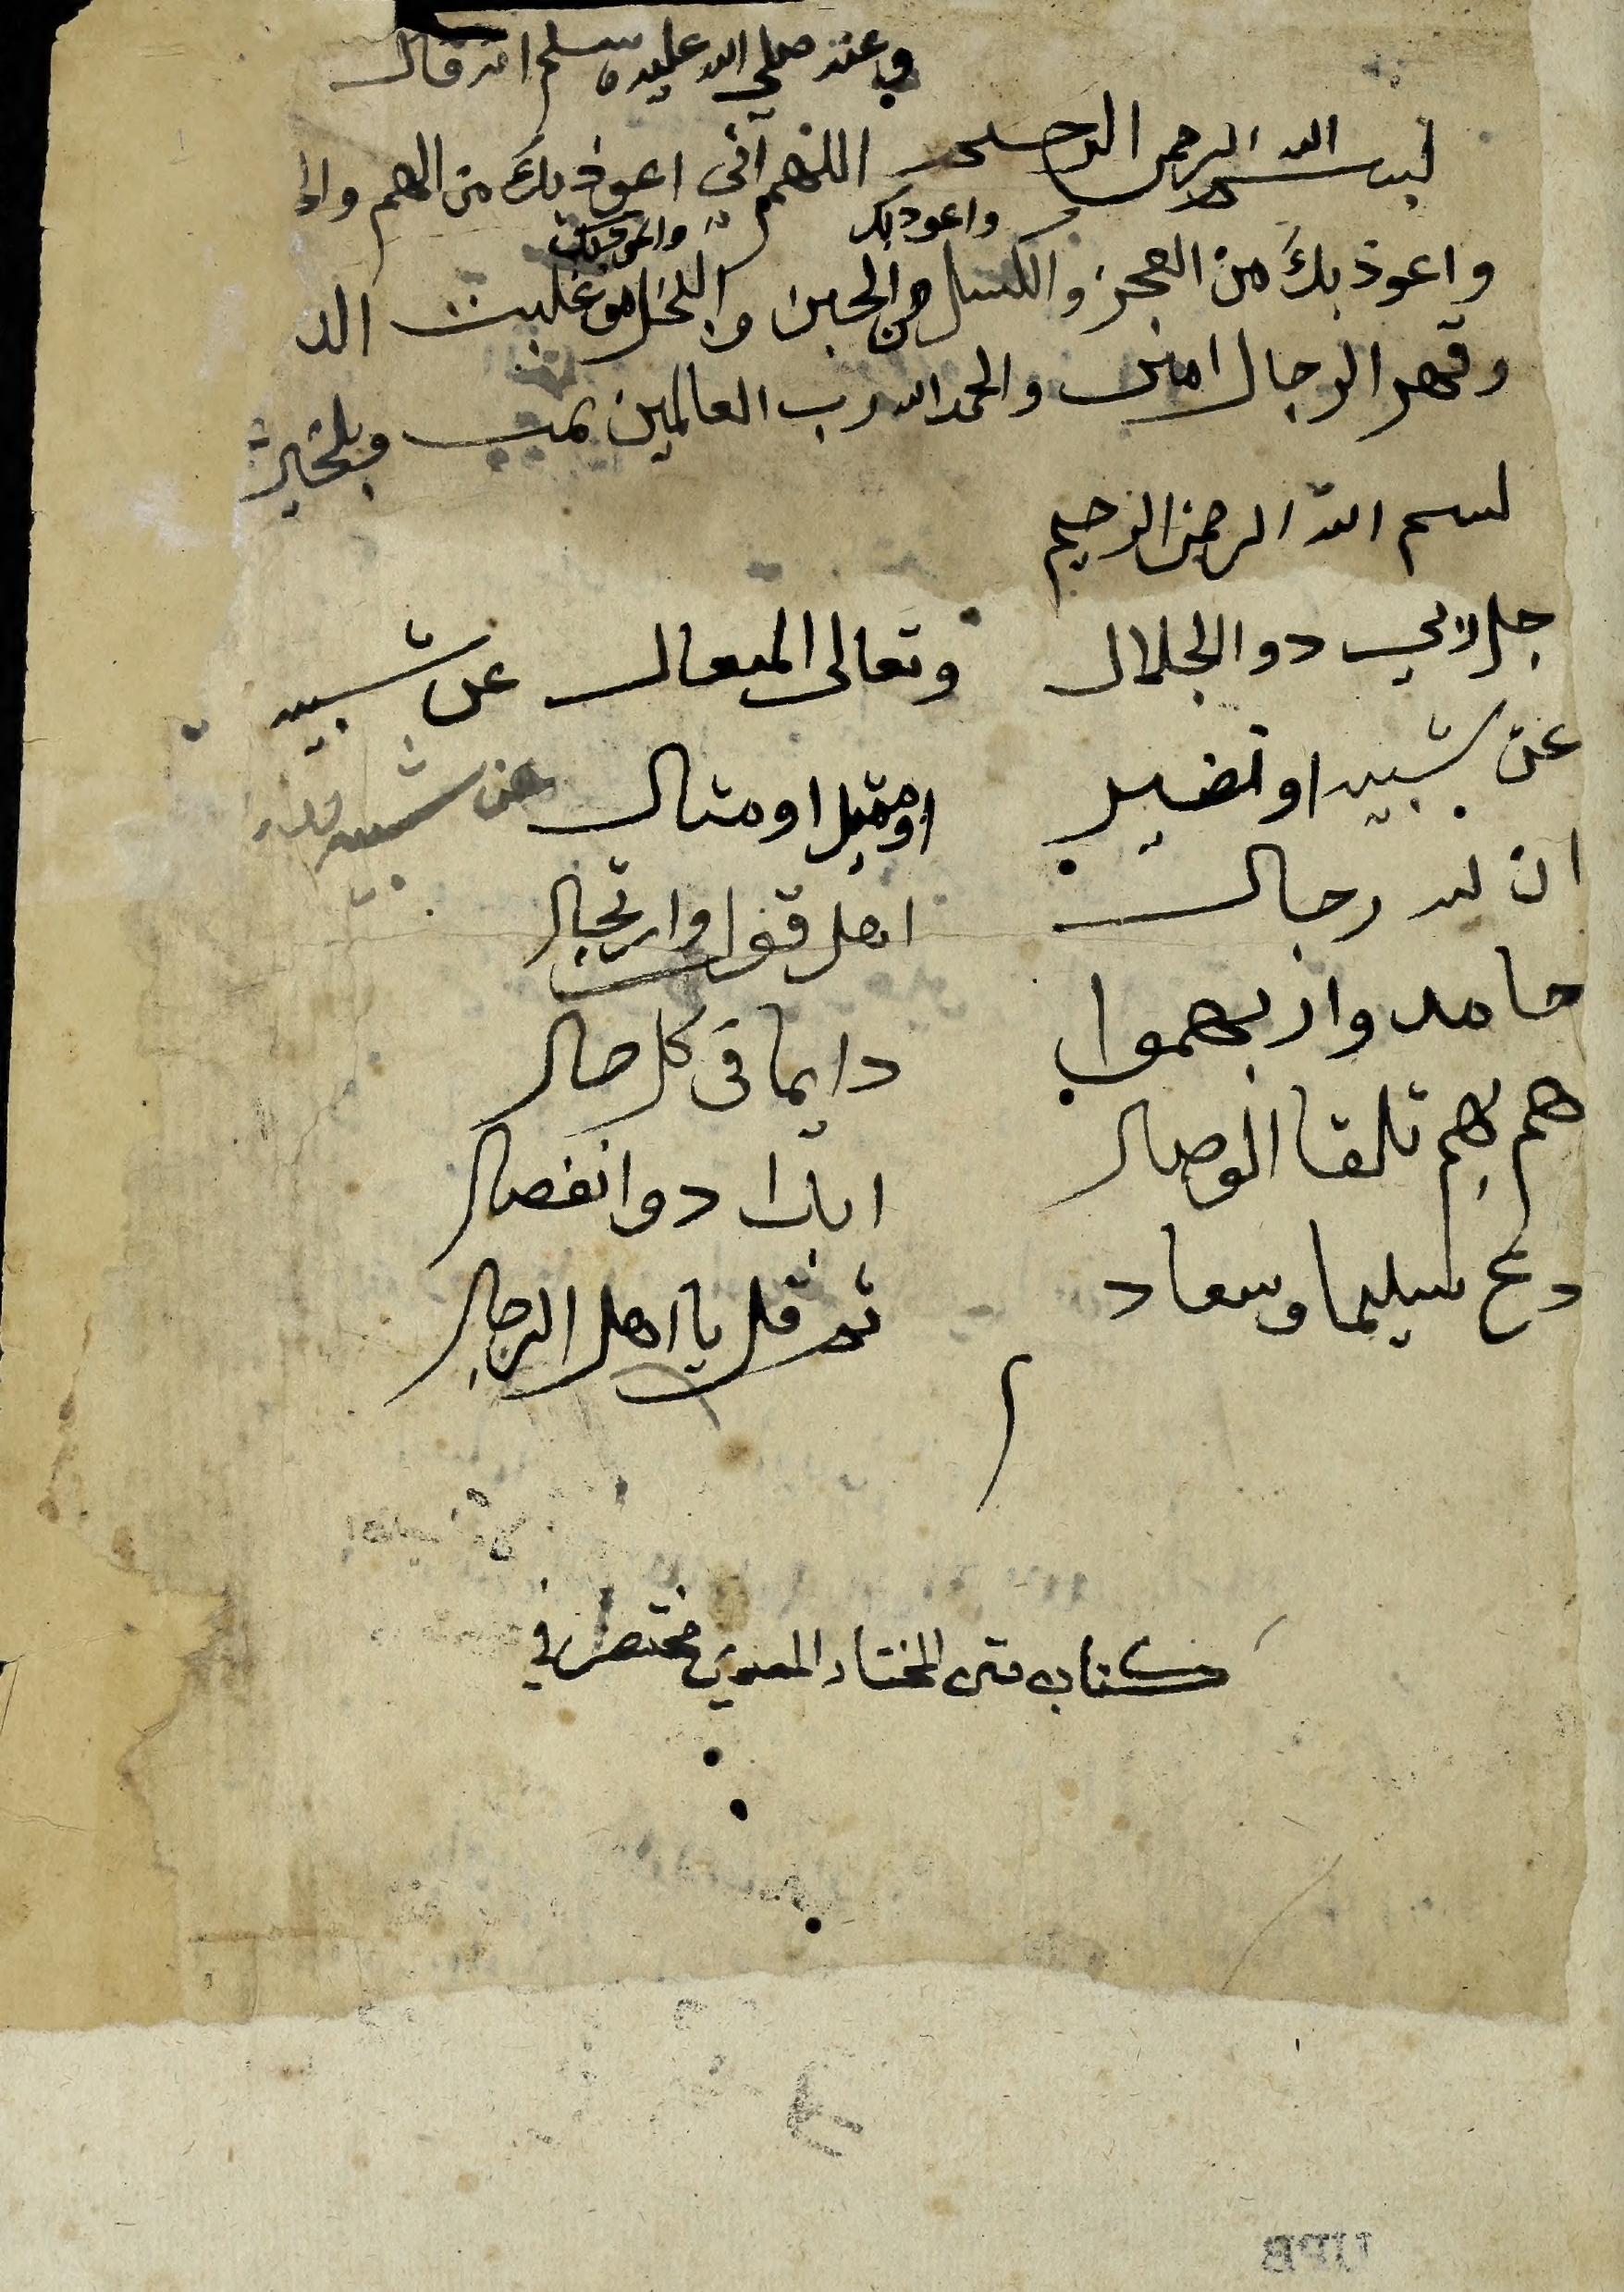 وعنه صلى الله عليه وسلم انه قال
بسم الله الرحمن الرحيم اللهم اني اعوذ بك من الهم والح
واعوذ بك واعوذ بك
واعوذ بك من العجز والكسل من الجبن والبخل من غلبت الد
وقهر الرجال امين والحمد الله رب العالمين تمت وبلخير
بسم الله الرحمن الرحيم
جل ربي دو الجلال وتعالى المتعال عن شبيه
عن شبيه او نضير او مثيل او مثال عن شبيه
ان لله رجال اهل قول وارتجال
حامد واربهموا دايما في كل حال
هم بهم تلقا الوصال اياك دو انفصال
دع سليما وسعاد ثم قل يا اهل الرجال
كتاب متن المختار مختصر في